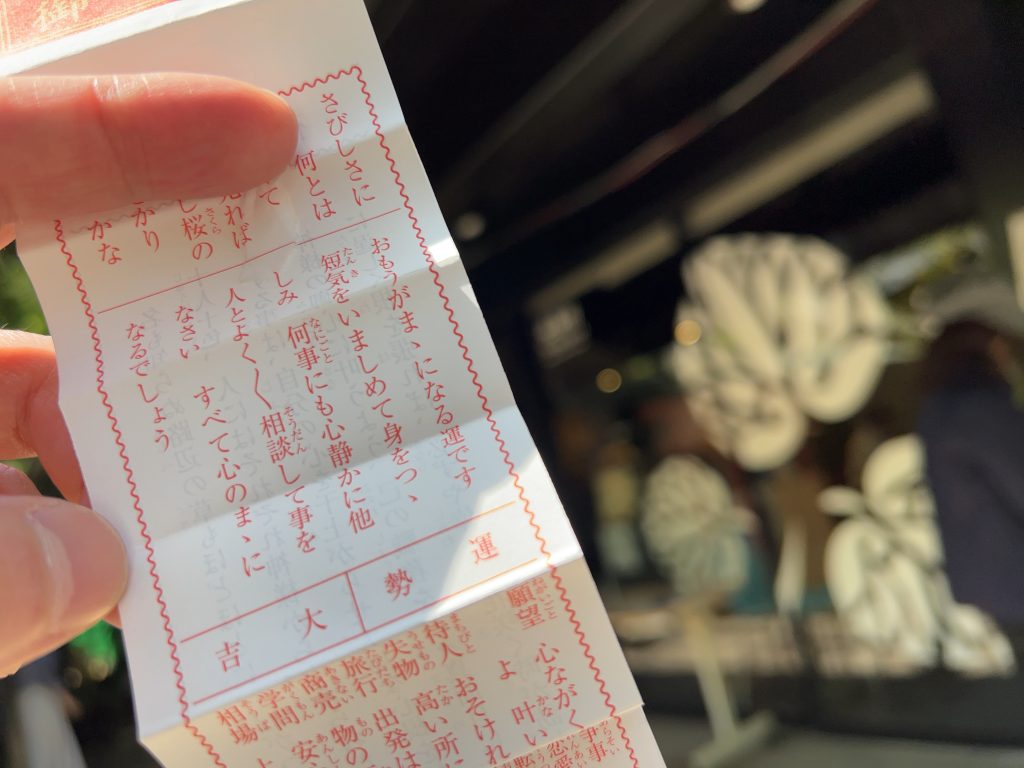 御
さびしさに
何とは
て
れば
し桜の
かり
かな
おもうがまゝになる運です
短気をいましめて身をつゝ
しみ 何事にも心静かに他
人とよく〱相談して事を
なさい すべて心のまゝに
なるでしょう
運勢
大吉
願望 心ながく
よ 叶い
待人 おそけれ
失物 高い所に
旅行 出発は
商売 物の
学問 安
相場
争事
恋愛